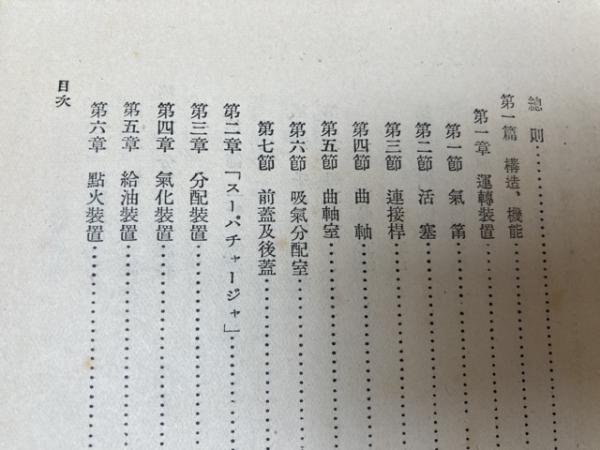 總則
第一篇 構造、機能
第一章 運轉裝置
第一節 氣筩
第二節 活塞
第三節 連接桿
第四節 曲軸
第五節 曲軸室
第六節 吸氣分配室
第七節 前蓋及後蓋
第二章 「スーパチャージャ」
第三章 分配裝置
第四章 氣化裝置
第五章 給油裝置
第六章 點火裝置
目次